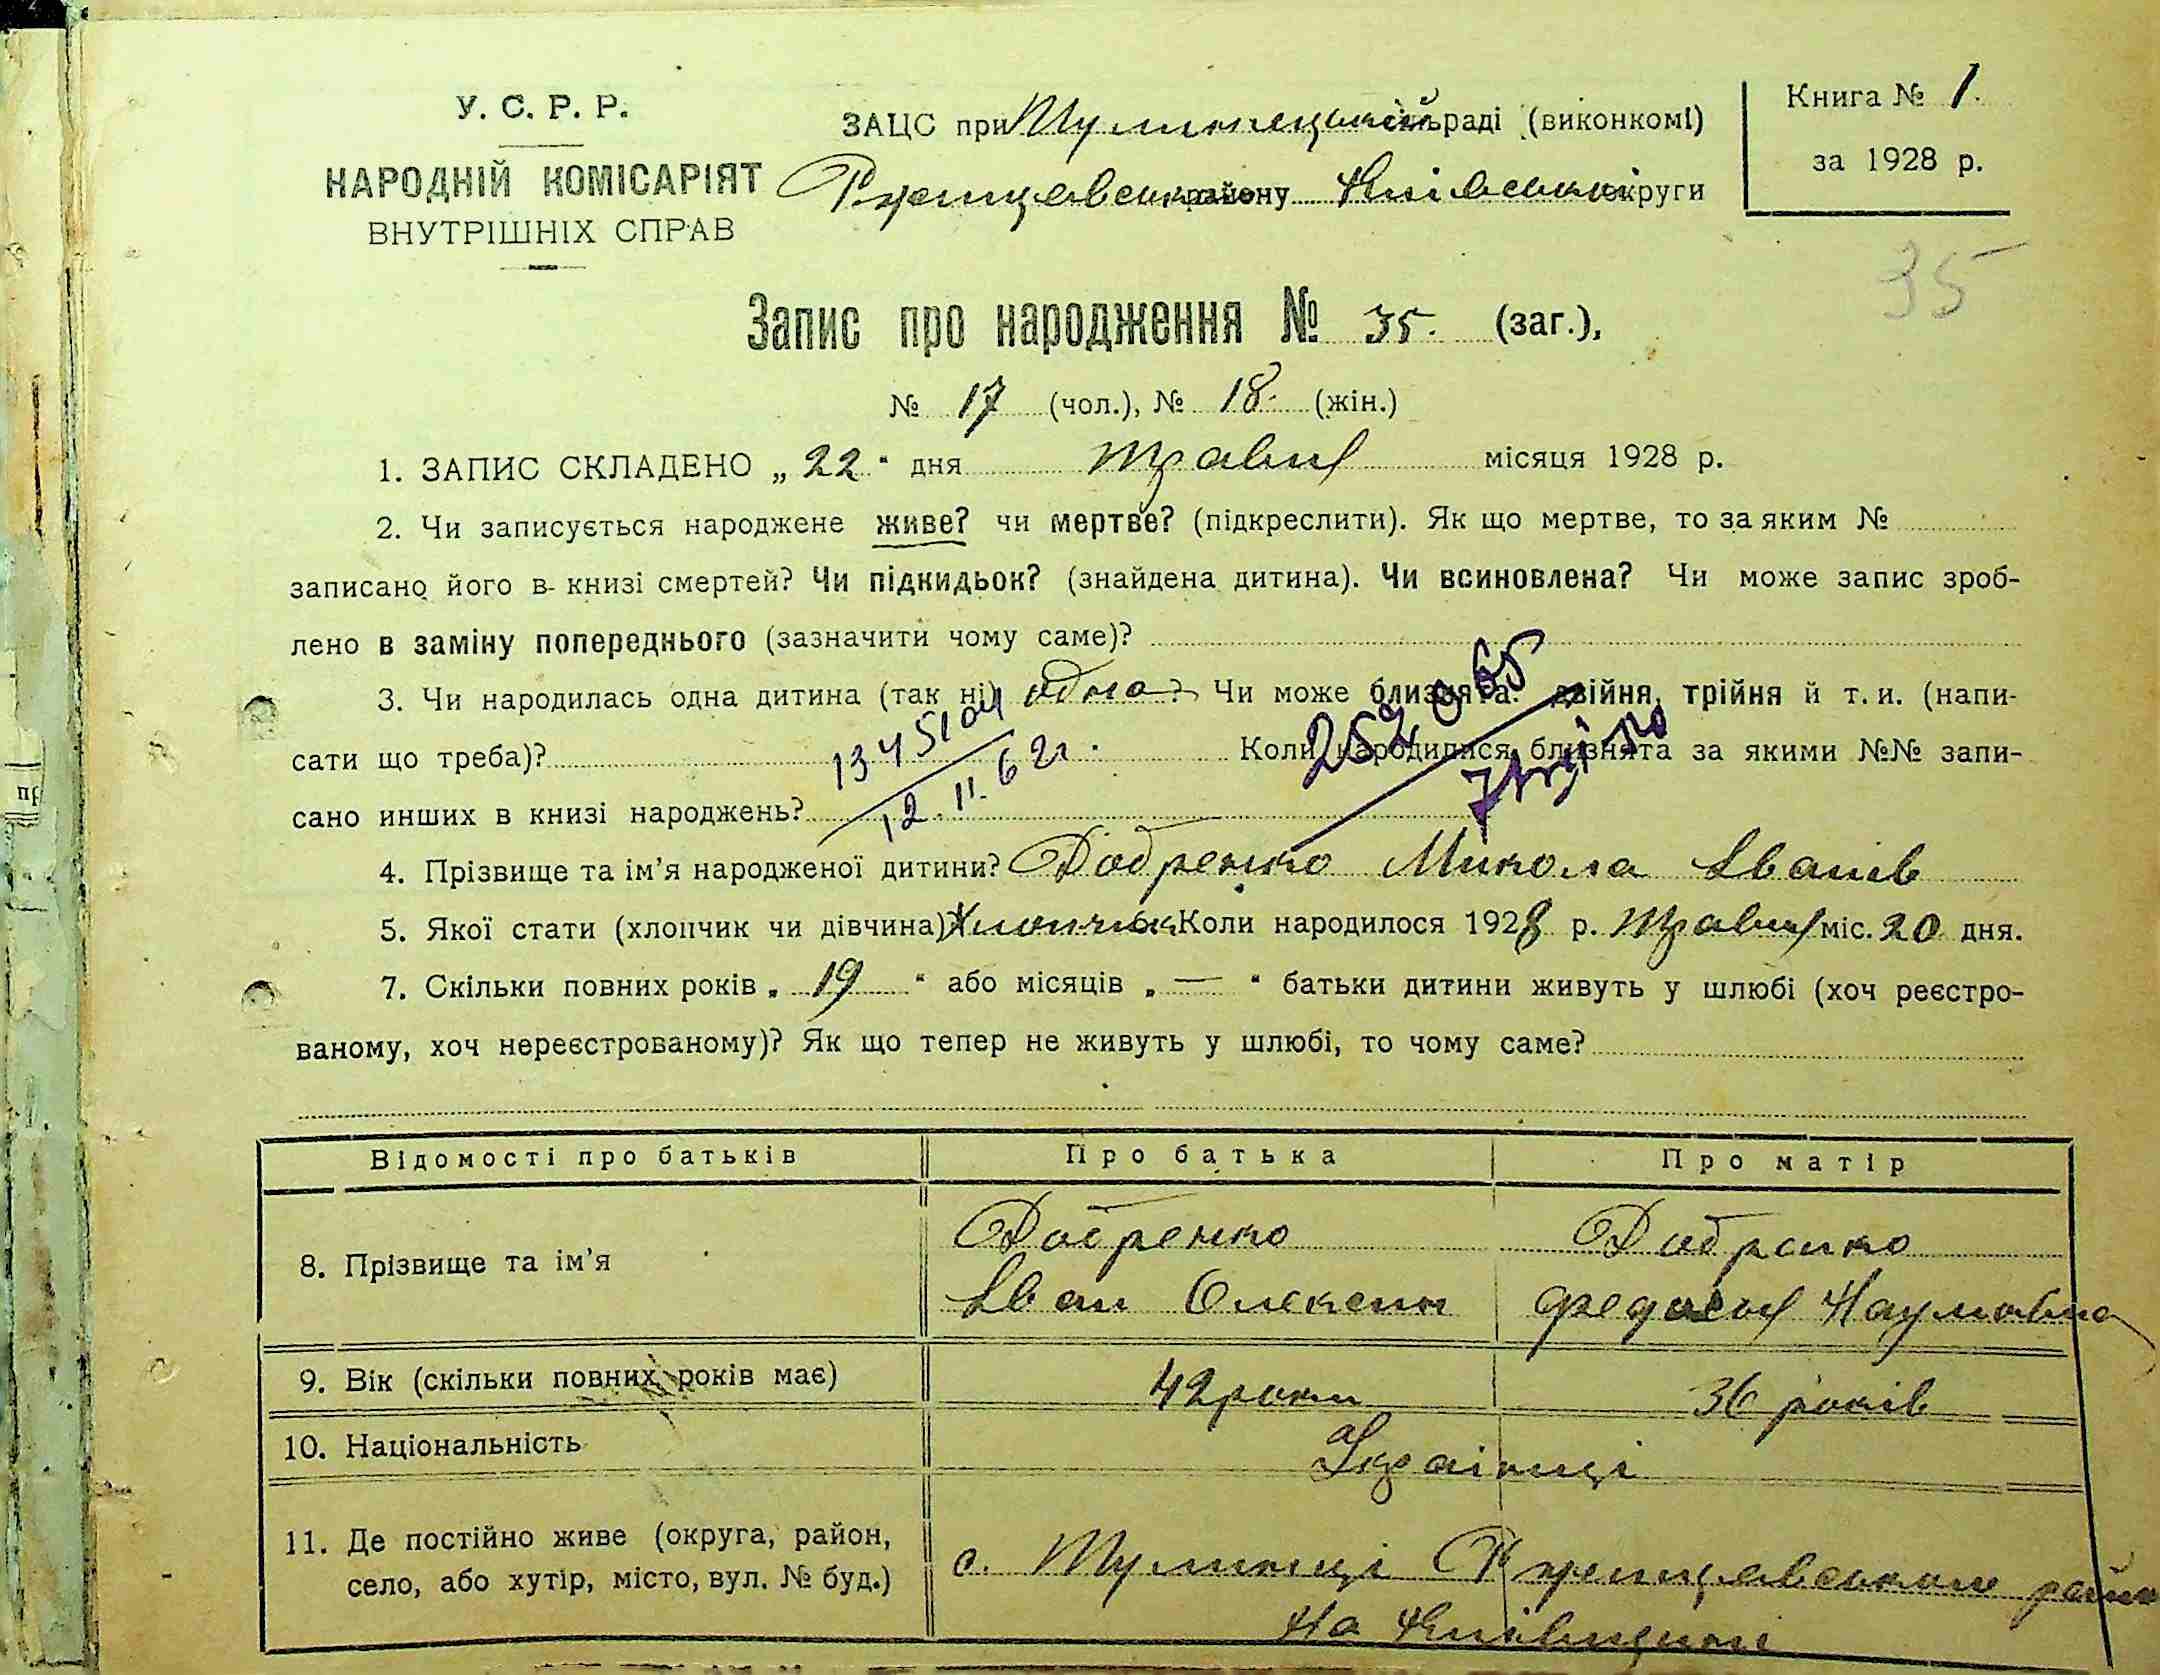 У. С. Р. Р.
НАРОДНІЙ КОМІСАРІЯТ
ВНУТРІШНІХ СПРАВ
ЗАЦС при Тулинецькій раді (виконкомі)
Ржищевськ району Київської округи
Книга № 1.
за 1928 р.
35
Запис про народження № 35. (заг.),
№ 17 (чол.), № 18. (жін.)
1. ЗАПИС СКЛАДЕНО „ 22 " дня травня місяця 1928 р.
2. Чи записується народжене живе? чи мертве? (підкреслити). Як що мертве, то за яким №
записано його в книзі смертей? Чи підкидьок? (знайдена дитина). Чи всиновлена? Чи може запис зроб-
лено в заміну попереднього (зазначити чому саме)?
3. Чи народилась одна дитина (так ні) одна? Чи може близнята: двійня, трійня й т. и. (напи-
сати що треба)? Коли народилися близнята за якими №№ запи-
сано инших в книзі народжень?
12.11.62г.
4. Прізвище та ім'я народженої дитини? Добренко Микола Іванів
5. Якої стати (хлопчик чи дівчина) Хлопчик Коли народилося 1928 р. травня міс. 20 дня.
7. Скільки повних років „ 19 " або місяців „ — " батьки дитини живуть у шлюбі (хоч реєстро-
ваному, хоч нереєстрованому)? Як що тепер не живуть у шлюбі, то чому саме?
Відомості про батьків Про батька Про матір
8. Прізвище та ім'я
Добренко Добренко
Іван Олексин Федосья Наумовна
9. Вік (скільки повних років має) 42 роки 36 років
10. Національність Українці
11. Де постійно живе (округа, район,
село, або хутір, місто, вул. № буд.)
с. Тулинці Ржищевського району
на Київщині